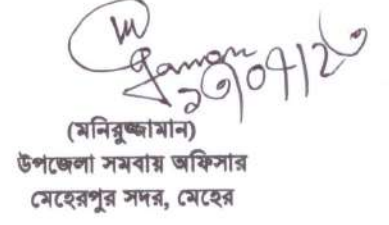 (মনিরুজ্জামান)
উপজেলা সমবায় অফিসার
মেহেরপুর সদর, মেহের